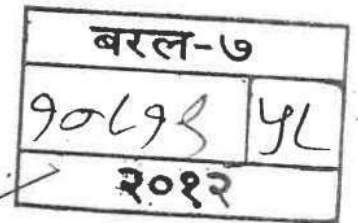 बरल-७
१०८१९ ५८
२०१२